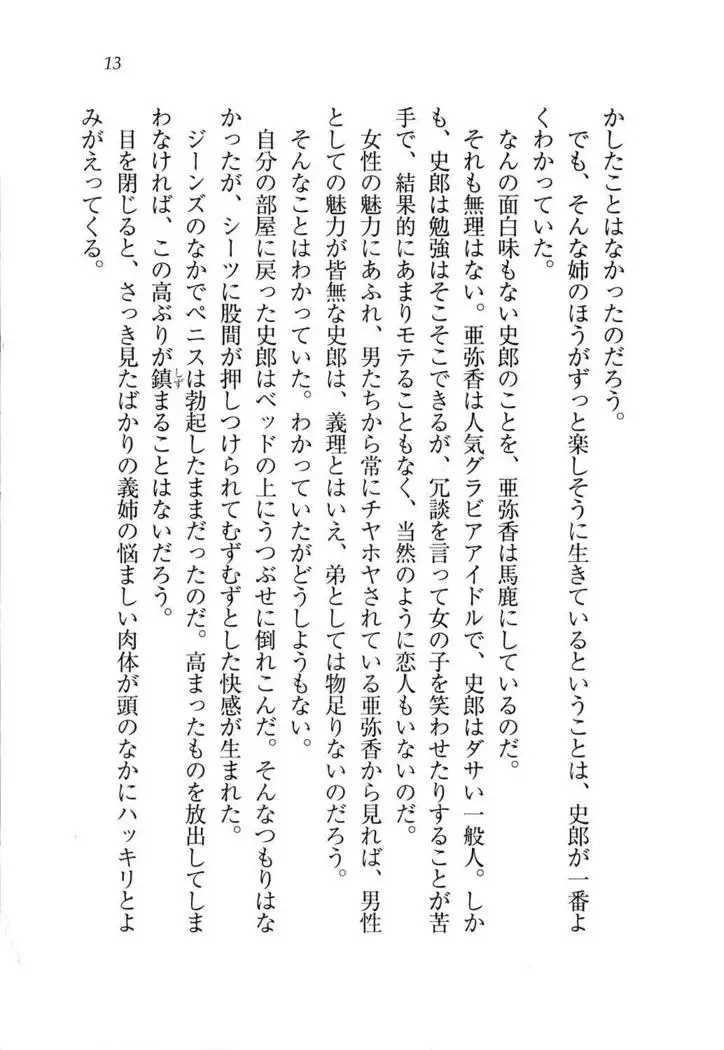 13
かしたことはなかったのだろう。
でも、そんな姉のほうがずっと楽しそうに生きているということは、史郎が一番よ
くわかっていた。
なんの面白味もない史郎のことを、亜弥香は馬鹿にしているのだ。
それも無理はない。亜弥香は人気グラビアアイドルで、史郎はダサい一般人。しか
も、史郎は勉強はそこそこできるが、冗談を言って女の子を笑わせたりすることが苦
手で、結果的にあまりモテることもなく、当然のように恋人もいないのだ。
女性の魅力にあふれ、男たちから常にチヤホヤされている亜弥香から見れば、男性
としての魅力が皆無な史郎は、義理とはいえ、弟としては物足りないのだろう。
そんなことはわかっていた。わかっていたがどうしようもない。
自分の部屋に戻った史郎はベッドの上にうつぶせに倒れこんだ。そんなつもりはな
かったが、シーツに股間が押しつけられてむずむずとした快感が生まれた。
ジーンズのなかでペニスは勃起したままだったのだ。高まったものを放出してしま
わなければ、この高ぶりが鎮しずまることはないだろう。
目を閉じると、さっき見たばかりの義姉の悩ましい肉体が頭のなかにハッキリとよ
みがえってくる。